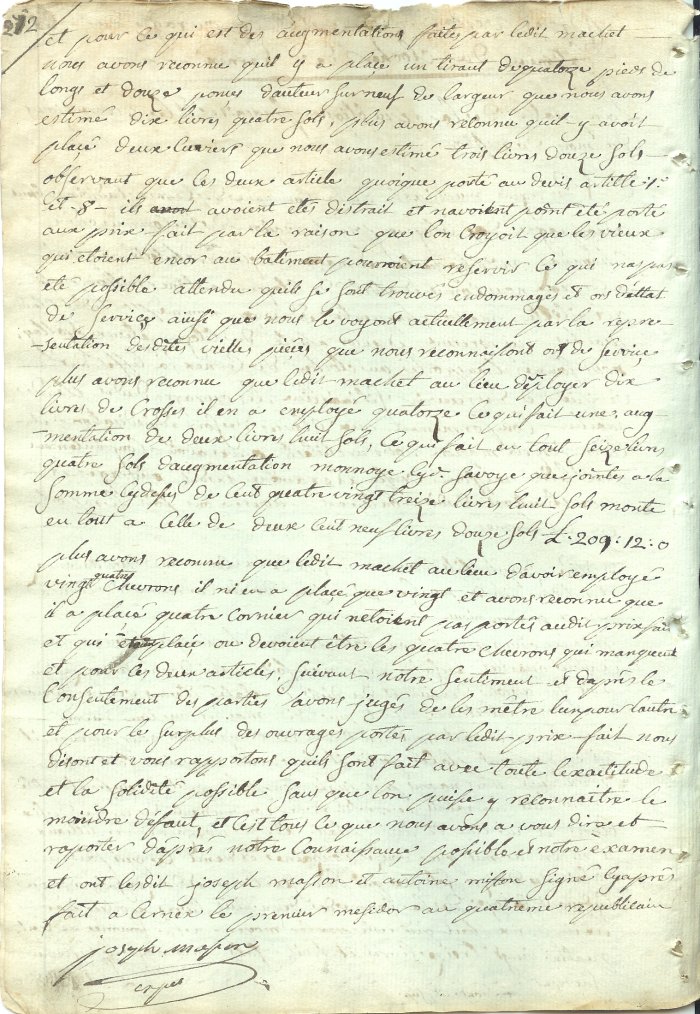 272
et pour ce qui est des augmentations faite par ledit machet
nous avons reconnu quil y a placé un tirant de quatorze pieds de
longs et douze pouces d'auteur sur neuf de largeur que nous avons
estimé dix livres quatre sols, plus avons reconnu quil y avoit
placé deux leviers que nous avons estimé trois livres douze sols
observant que ces deux article quoique porté au devis article 7e
et 8 ils avoient etés distrait et navoient point été porté
aux prix fait par la raison que lon croyoit que les vieux
qui etoient encor au batiment pourroient reservir ce qui na pas
été possible attendu quils se sont trouvés endommagés et ors d'ettat
de service ainsi que nous le voyont actuellement par la repre
-sentation desdites vielles pièces que nous reconnaissont ors de service
plus avons reconnu que ledit machet au lieu d'employer dix
livres de crosses il en a employé quatorze ce qui fait une aug
-mentation de deux livres huit sols, ce qui fait en tout seize livres
quatre sols d'augmentation monnoye cydt savoye que jointes a la
somme cy dessus de cent quatre vingt treize livres huit sols monte
en tout a celle de deux cent neuf livres douze sols £. 209 : 12 : 0
plus avons reconnu que ledit machet au lieu d'avoir employé
vingt quatre chevrons il ni en a placé que vingt et avons reconnu que
il a placé quatre cornier qui netoient pas portés audit prix fait
et qui placé ou devoient être les quatre chevrons qui manquent
et pour ces deux articles suivant notre sentiment et d'après le
consentement des parties avons jugés de les mêtre lun pour lautre
et pour le surplus des ouvrages portés par ledit prix fait nous
disont et vous rapportons quils sont fait avec toute lexactitude
et la solidité possible sans que lon puisse y reconnaitre le
moindre défaut, et c'est tous ce que nous avons a vous dire et
raporter d'après notre connaissance possible et notre examen
et ont lesdit joseph masson et antoine misson signé cy après
fait a cernex le premier mesidor an quatrieme republicain
joseph masson
expert